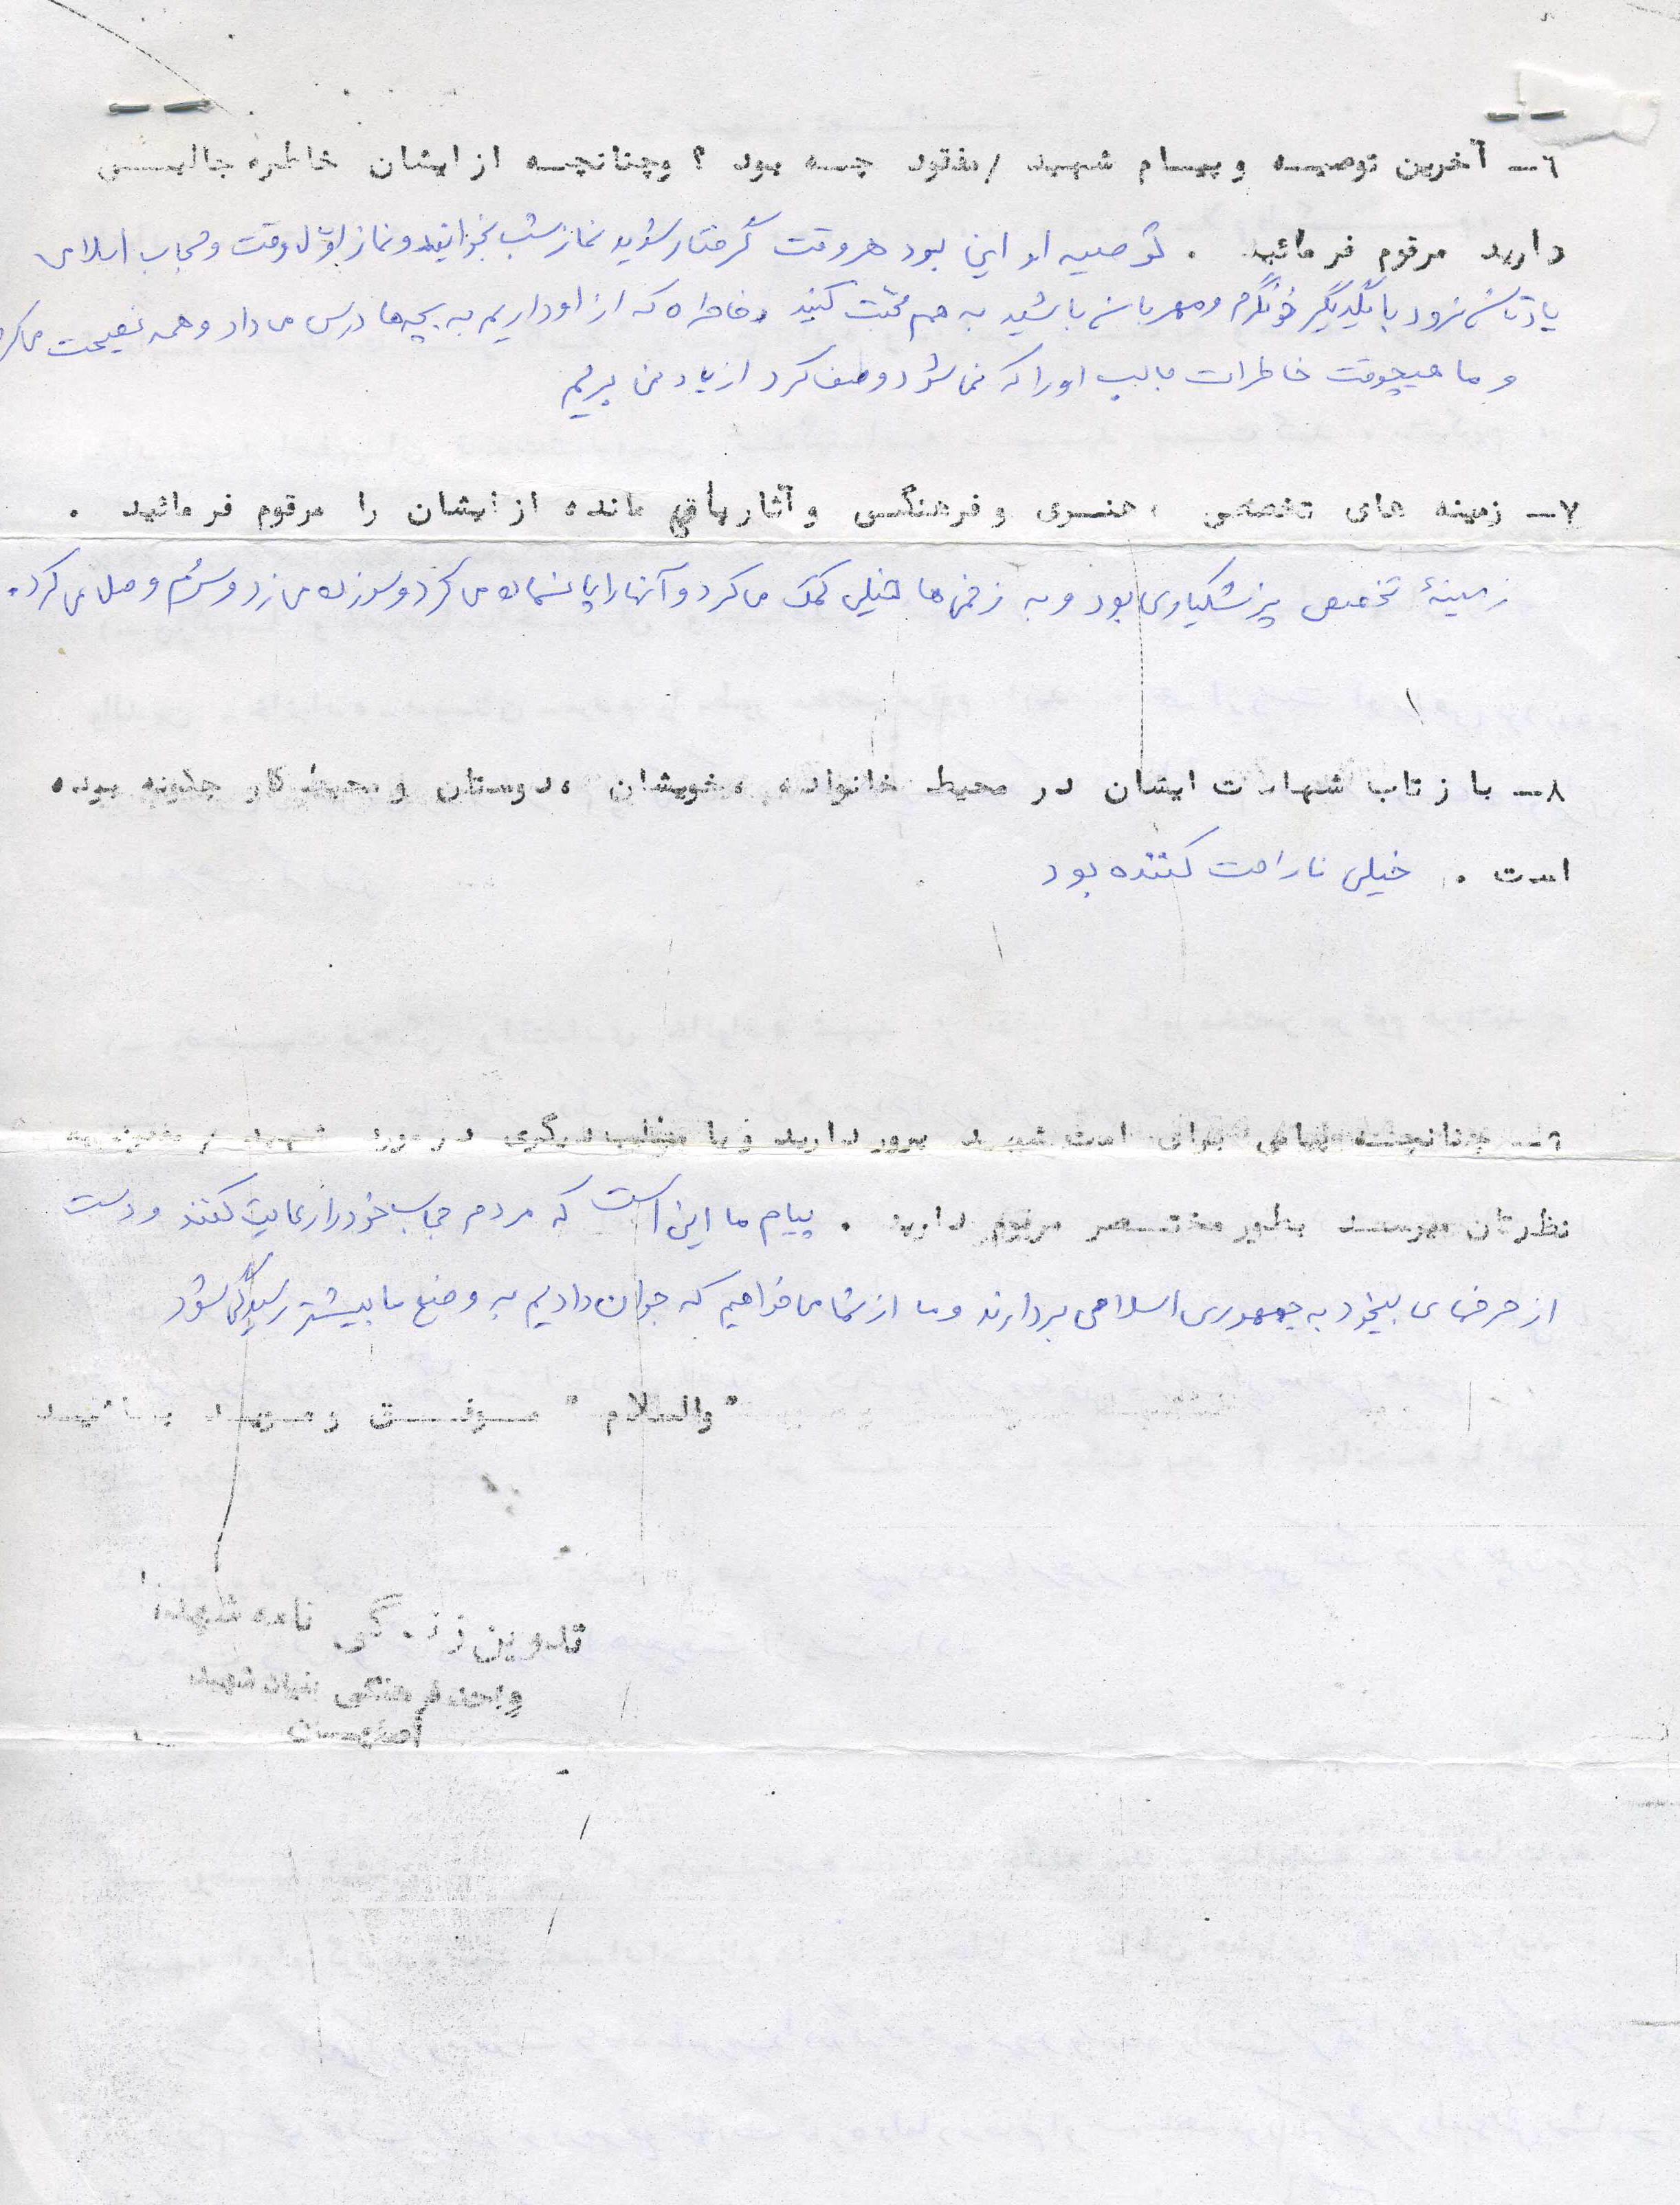 ۶ــ آخرین توصیه و پیام شهید / مفقود چه بود ؟ وچنانچه از ایشان خاطره جالبی
دارید مرقوم فرمائید . توصیه او این بود هر وقت گرفتار شوید نماز شب بخوانید و نماز اول وقت و حجاب اسلامی
یادتان نرود با یکدیگر خونگرم و مهربان باشید به هم محبت کنید و خاطراه که از او داریم به بچه‌ها درس می داد و همه نصیحت می کرد
و ما هیچوقت خاطرات جالب او را که نمی شود وصف کرد از یاد نمی بریم
۷ــ زمینه های تخصصی ، هنری و فرهنگی و آثار باقی مانده از ایشان را مرقوم فرمائید .
زمینهٔ تخصص پزشکیاری بود و به زخمی ها خیلی کمک می کرد و آنها را پانسمان می کرد و سوزن می زد و سرم وصل می کرد.
۸ــ بازتاب شهادت ایشان در محیط خانواده ، خویشان ، دوستان و محیط کار چگونه بوده
است . خیلی ناراحت کننده بود
۹ــ چنانچه پیامی برای امت شهید پرور دارید و یا مطلب دیگری در مورد شهید / مفقود به
نظرتان میرسد بطور مختصر مرقوم دارید . پیام ما این است که مردم حجاب خود را رعایت کنند و دست
از حرفهای بیخود به جمهوری اسلامی بردارند و ما از شما می خواهیم که جوان دادیم به وضع ما بیشتر رسیدگی شود
" والسلام " موفق و موید باشید
تدوین زندگی نامه شهدا
واحد فرهنگی بنیاد شهید
اصفهان